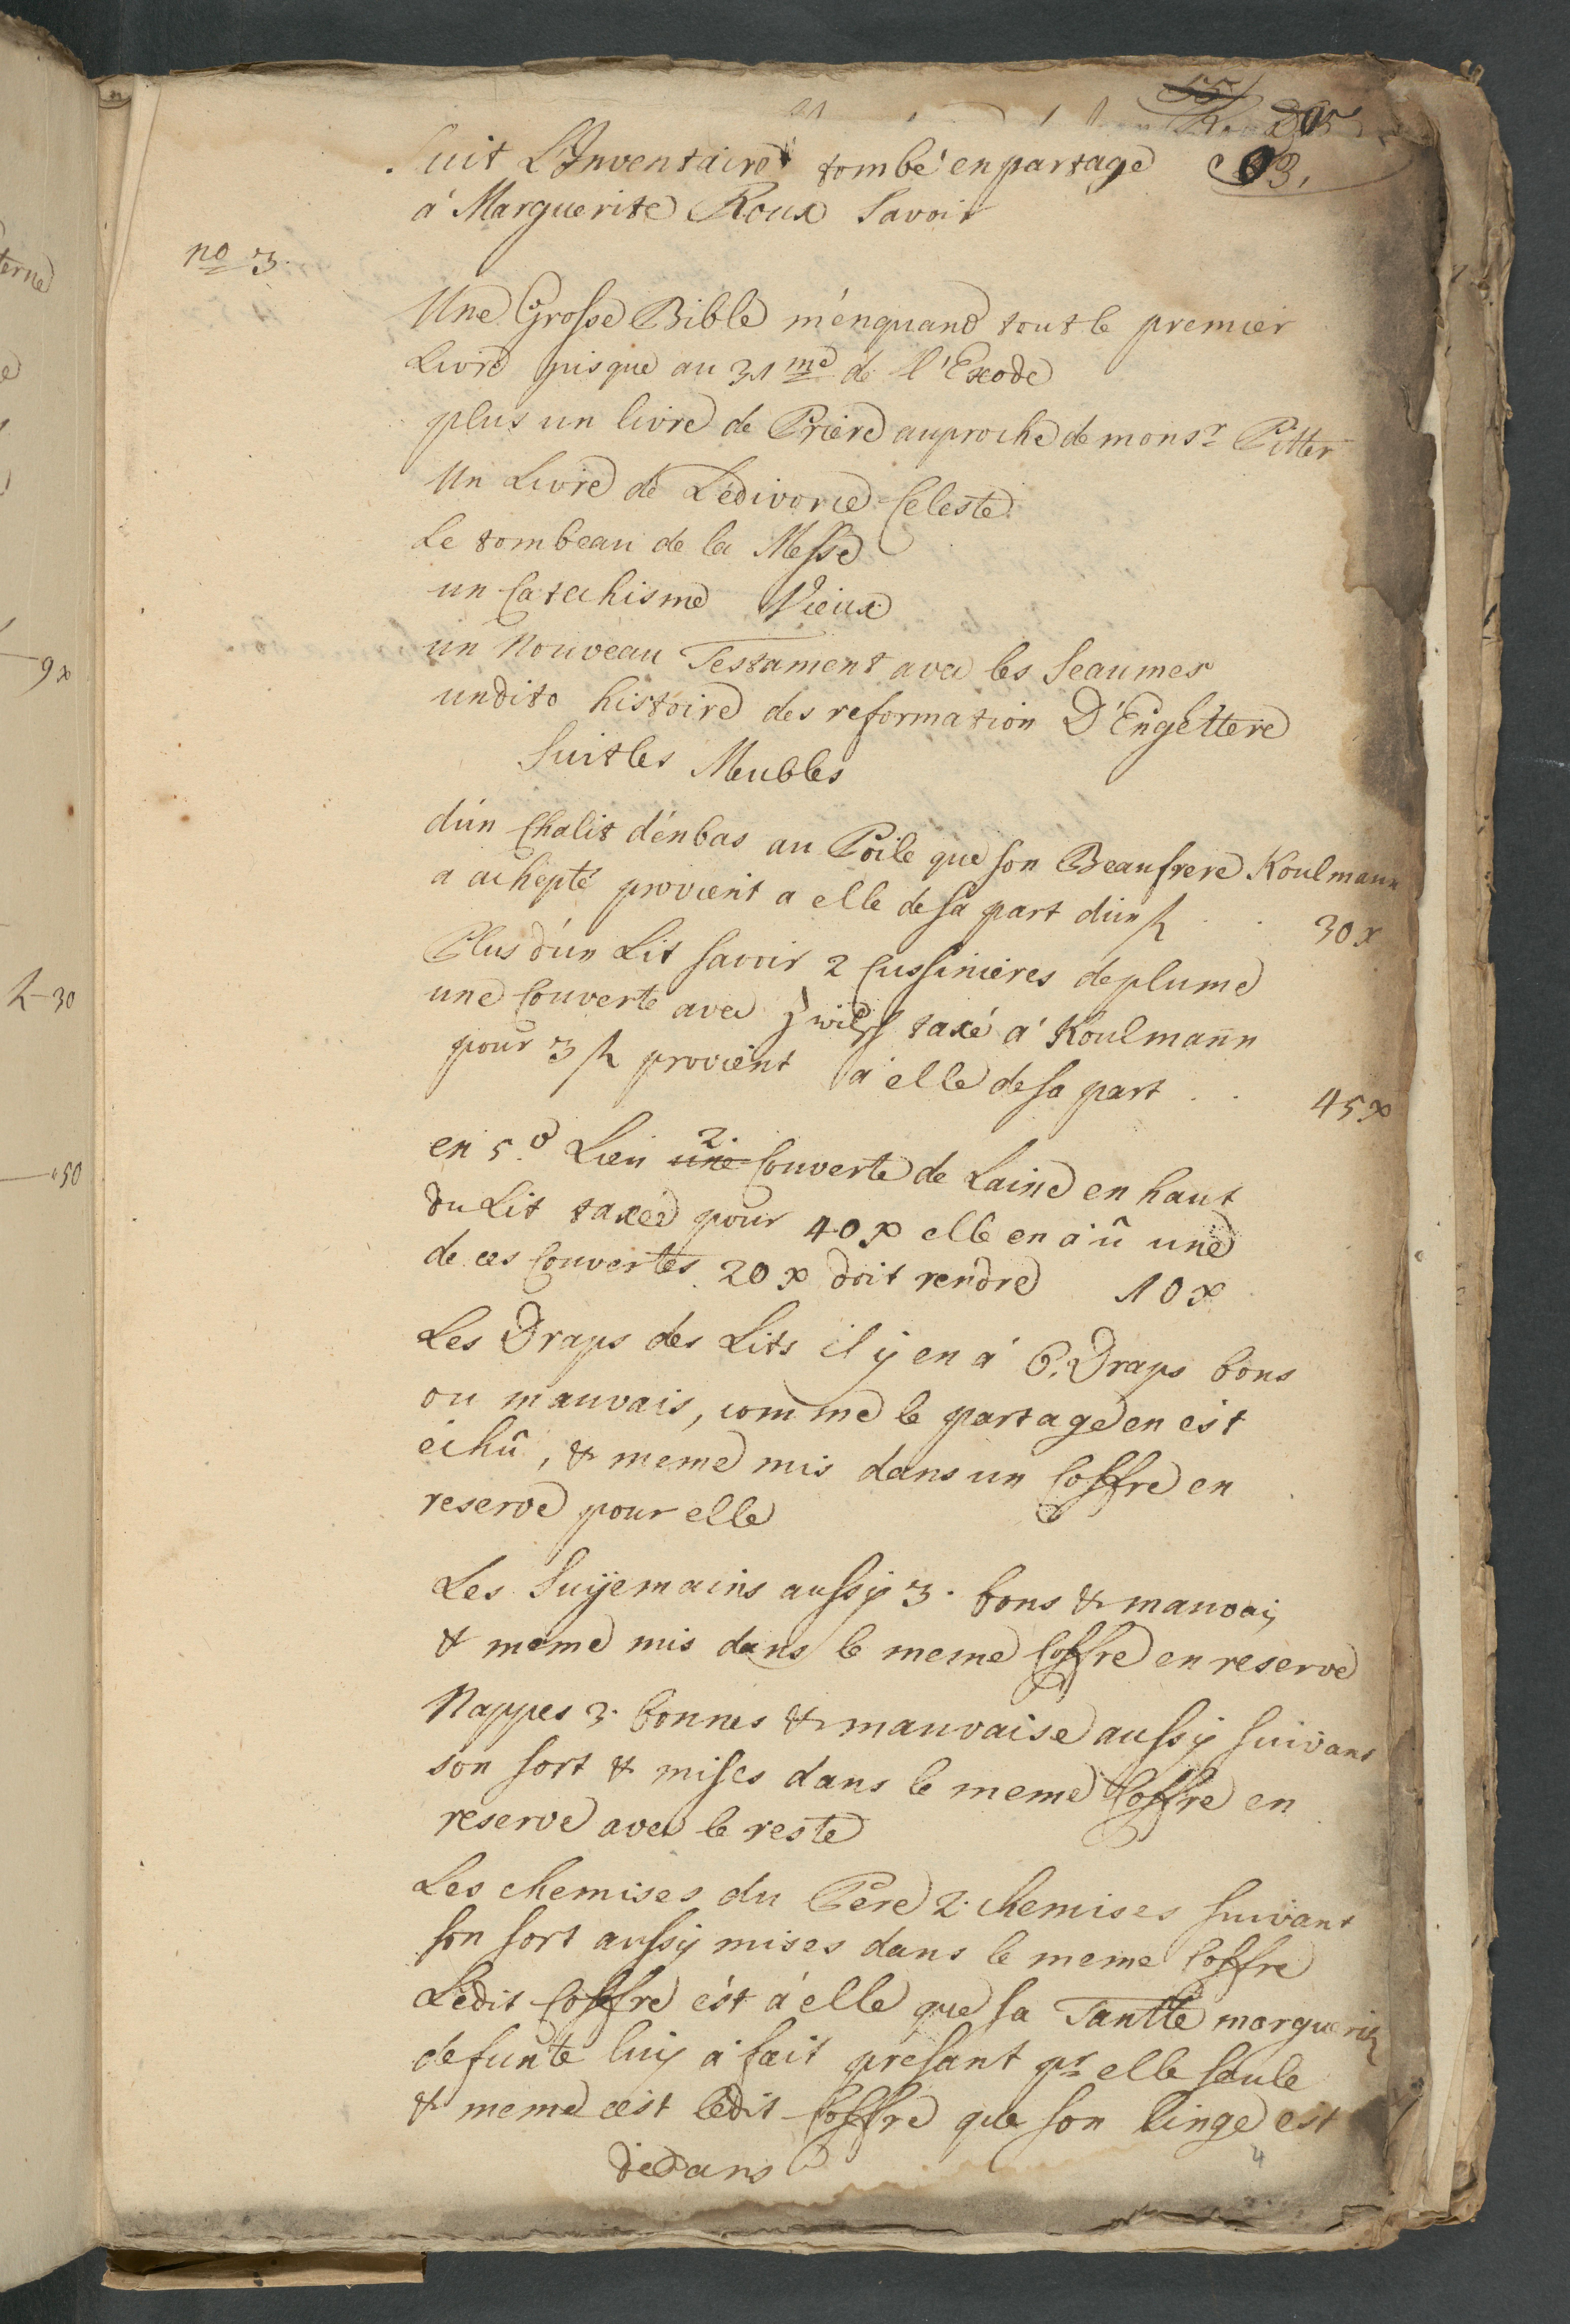 Suit L'Inventaire tombé en partage
á Marguerite Roux Savoir
no 3.
Une Grosse Bible ménquand tout le premier
Livre jusque au 31me de l'Exode
plus un livre de Priere auproche de monsr Pitter
Un Livre de Lédivorce Celeste
Le tombeau de la Messe
un Catechisme Vieux
un Nouveau Testament avec les Seaumes
undito histoire des reformation D'Engettere
Suit les Meubles
dún Chalit dénbas au Poile que son Beaufrere Koulmann
a achepté provient a elle de sa part dún . . 30 x
Plus dún Lit savoir 2 Cussinieres de plume
une Couverte avec taxé á Koulmann
pour 3 provient á elle de sa part . . 45 x
en 5.o Lieu une 2. Couverte de Laine en haut
du Lit taxée pour 40 x elle en á û une
de ces Couvertes. 20 x doit rendre 10 x
Les Draps des Lits il ÿ en á 6. Draps bons
ou mauvais, comme le partage en est
échû, & meme mis dans un Coffre en
reserve pour elle
Les Suÿemains aussÿ 3. bons & mauvais
& meme mis dans le meme Coffre en reserve
Nappes 3. bonnes & mauvaise aussÿ suivant
son sort & mises dans le meme Coffre en
reserve avec le reste
Les chemises du Pere 2. chemises suivant
son sort aussÿ mises dans le meme Coffre
Ledit Coffre ést á elle que sa Tantte margueritte
defunte luÿ á fait présant pr elle seule
& meme cést ledit Coffre que son linge est
dedans
4
9 x
30
50